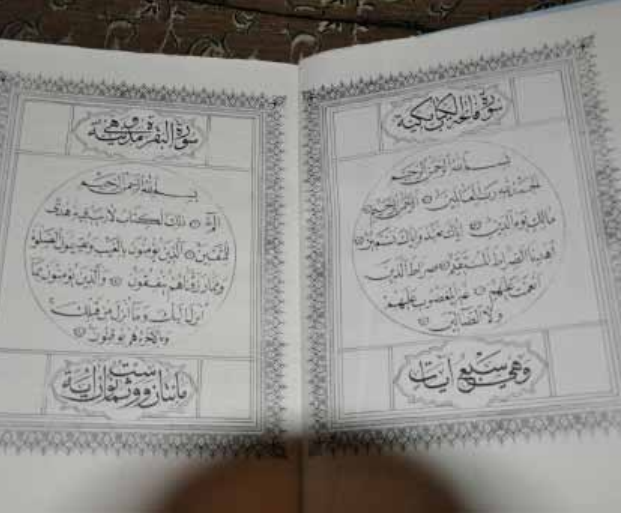 سورة فاتحة الكتاب مكية
بسم الله الرحمن الرحيم
الحمد لله رب العالمين الرحمن الرحيم
مالك يوم الدين اياك نعبد واياك نستعين
اهدنا الصراط المستقيم صراط الذين
انعمت عليهم غير المغضوب عليهم
ولا الضالين
وهي سبع آيات
سورة البقرة وهي مدنية
بسم الله الرحمن الرحيم
الم ذلك الكتاب لا ريب فيه هدى
للمتقين الذين يؤمنون بالغيب ويقيمون الصلوة
ومما رزقناهم ينفقون والذين يؤمنون بما
انزل اليك وما انزل من قبلك
وبالآخرة هم يوقنون
مائتان وست وثمانون آية